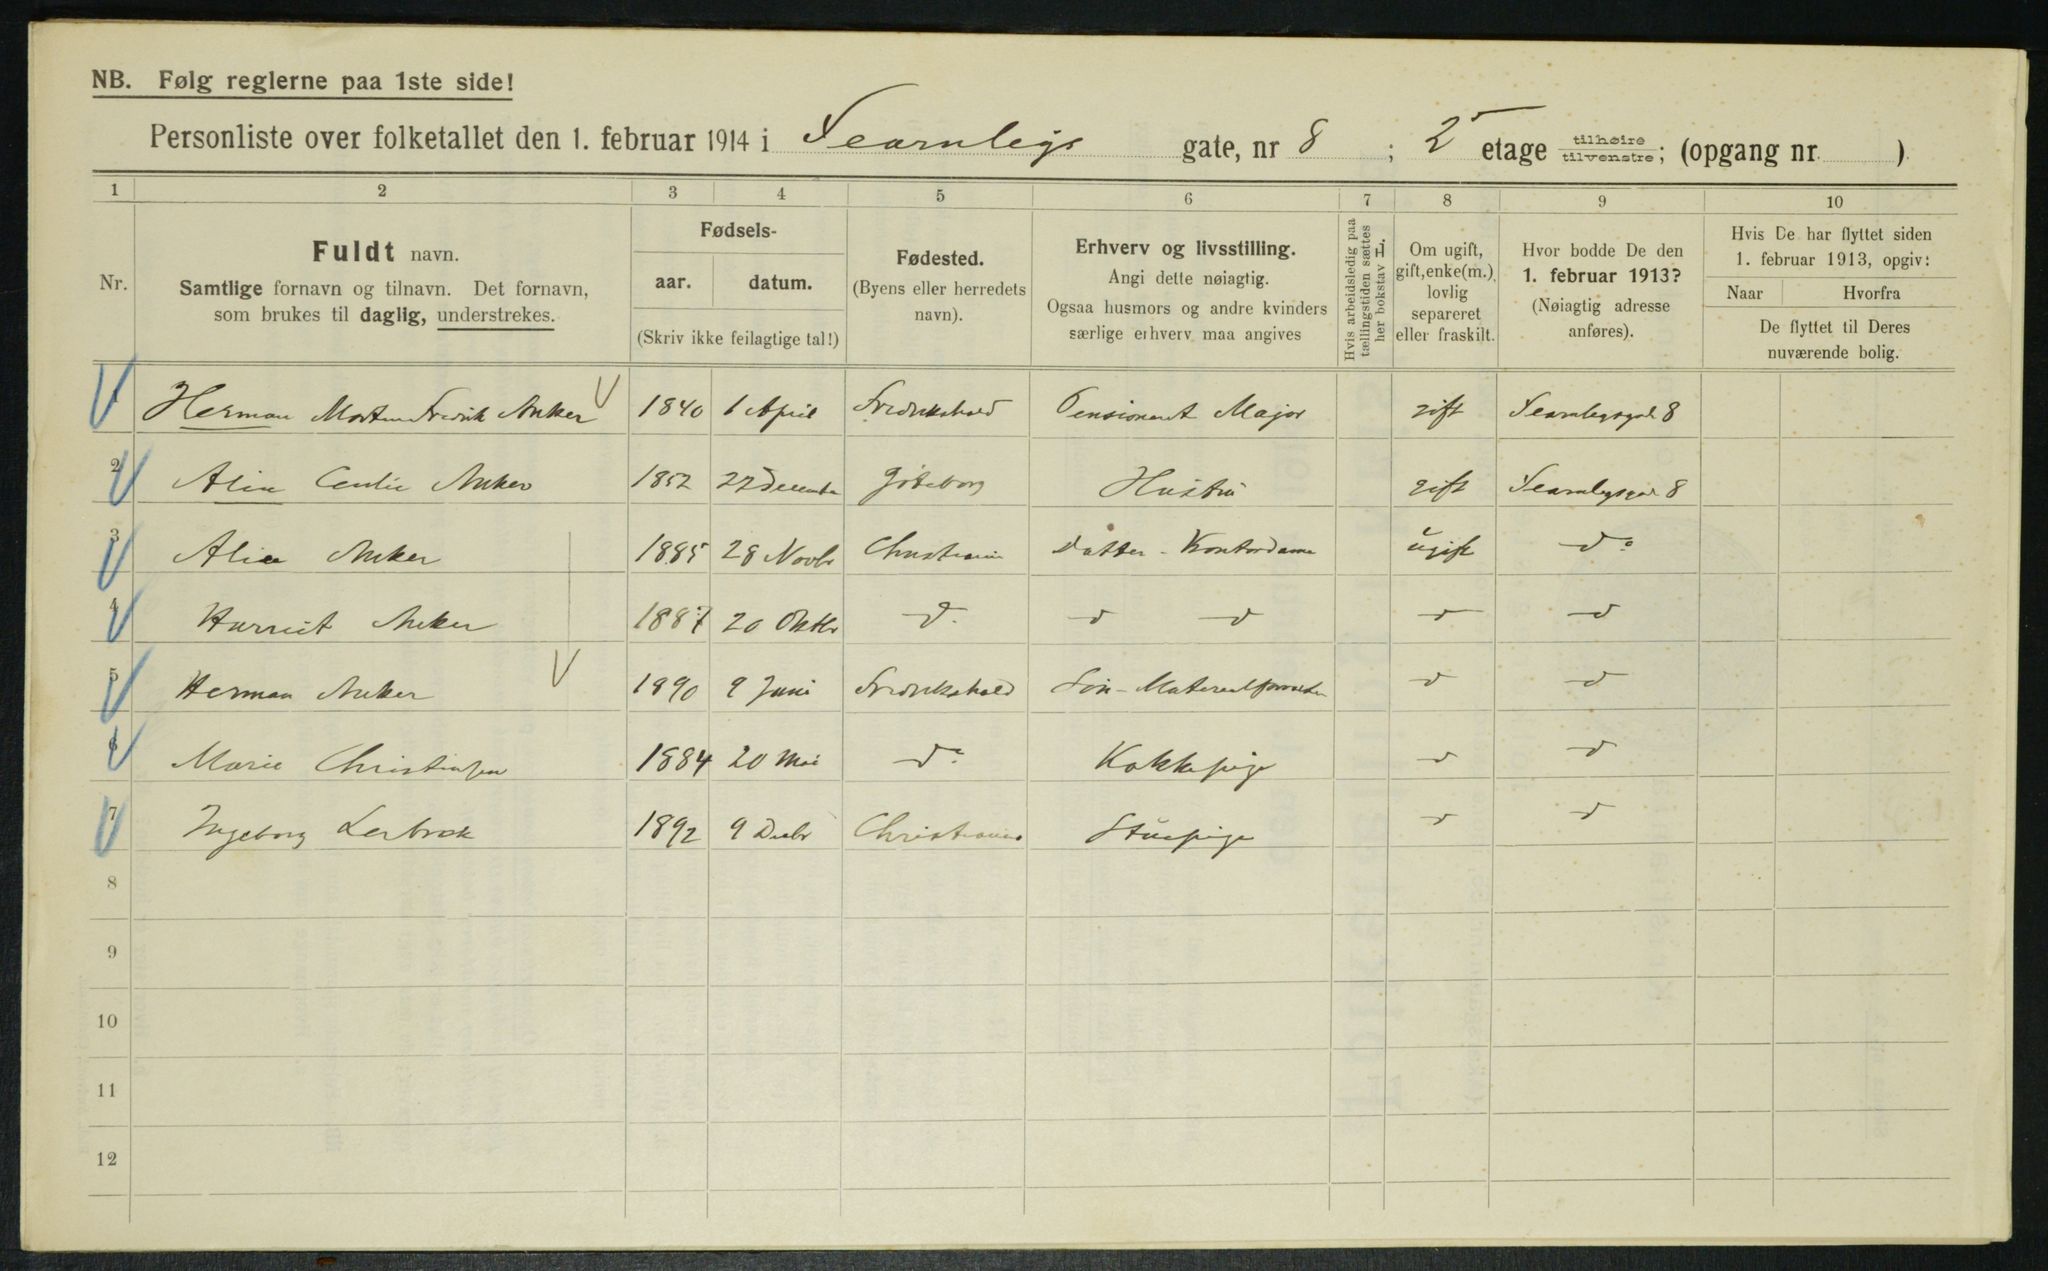 NB. Følg reglerne paa 1ste side!
Personliste over folketallet den 1. februar 1914 i Fearnleys gate, nr 8 ; 2 etage tilhøire tilvenstre; (opgang nr. )
1 2 3 4 5 6 7 8 9 10
Nr.
Fuldt navn.
Samtlige fornavn og tilnavn. Det fornavn,
som brukes til daglig, understrekes.
Fødsels-
aar. datum.
(Skriv ikke feilagtige tal!)
Fødested.
(Byens eller herredets
navn).
Erhverv og livsstilling.
Angi dette nøiagtig.
Ogsaa husmors og andre kvinders
særlige erhverv maa angives
Hvis arbeidsledig paa
tællingstiden sættes
her bokstav L.
Om ugift,
gift, enke(m.),
lovlig
separeret
eller fraskilt.
Hvor bodde De den
1. februar 1913?
(Nøiagtig adresse
anføres).
Hvis De har flyttet siden
1. februar 1913, opgiv:
Naar Hvorfra
De flyttet til Deres
nuværende bolig.
1 Herman Morten Fredrik Anker 1840 1 April Fredrikshald Pensioneret Major gift Fearnleysgade 8
2 Alice Anker 1852 27 December Göteborg Hustru gift Fearnleysgade 8
3 Alice Anker 1885 28 Novbr Christiania datter - Kontordame ugift do
4 Harriet Anker 1887 20 Oktbr do d d d d
5 Herman Anker 1890 9 Juni Fredrikshald Søn - Materialforvalter d d
6 Marie Christensen 1884 20 Mai do Kokkepige d d
7 Ingeborg Lerbræk 1892 9 Decbr Christiania Stuepige d d
8
9
10
11
12